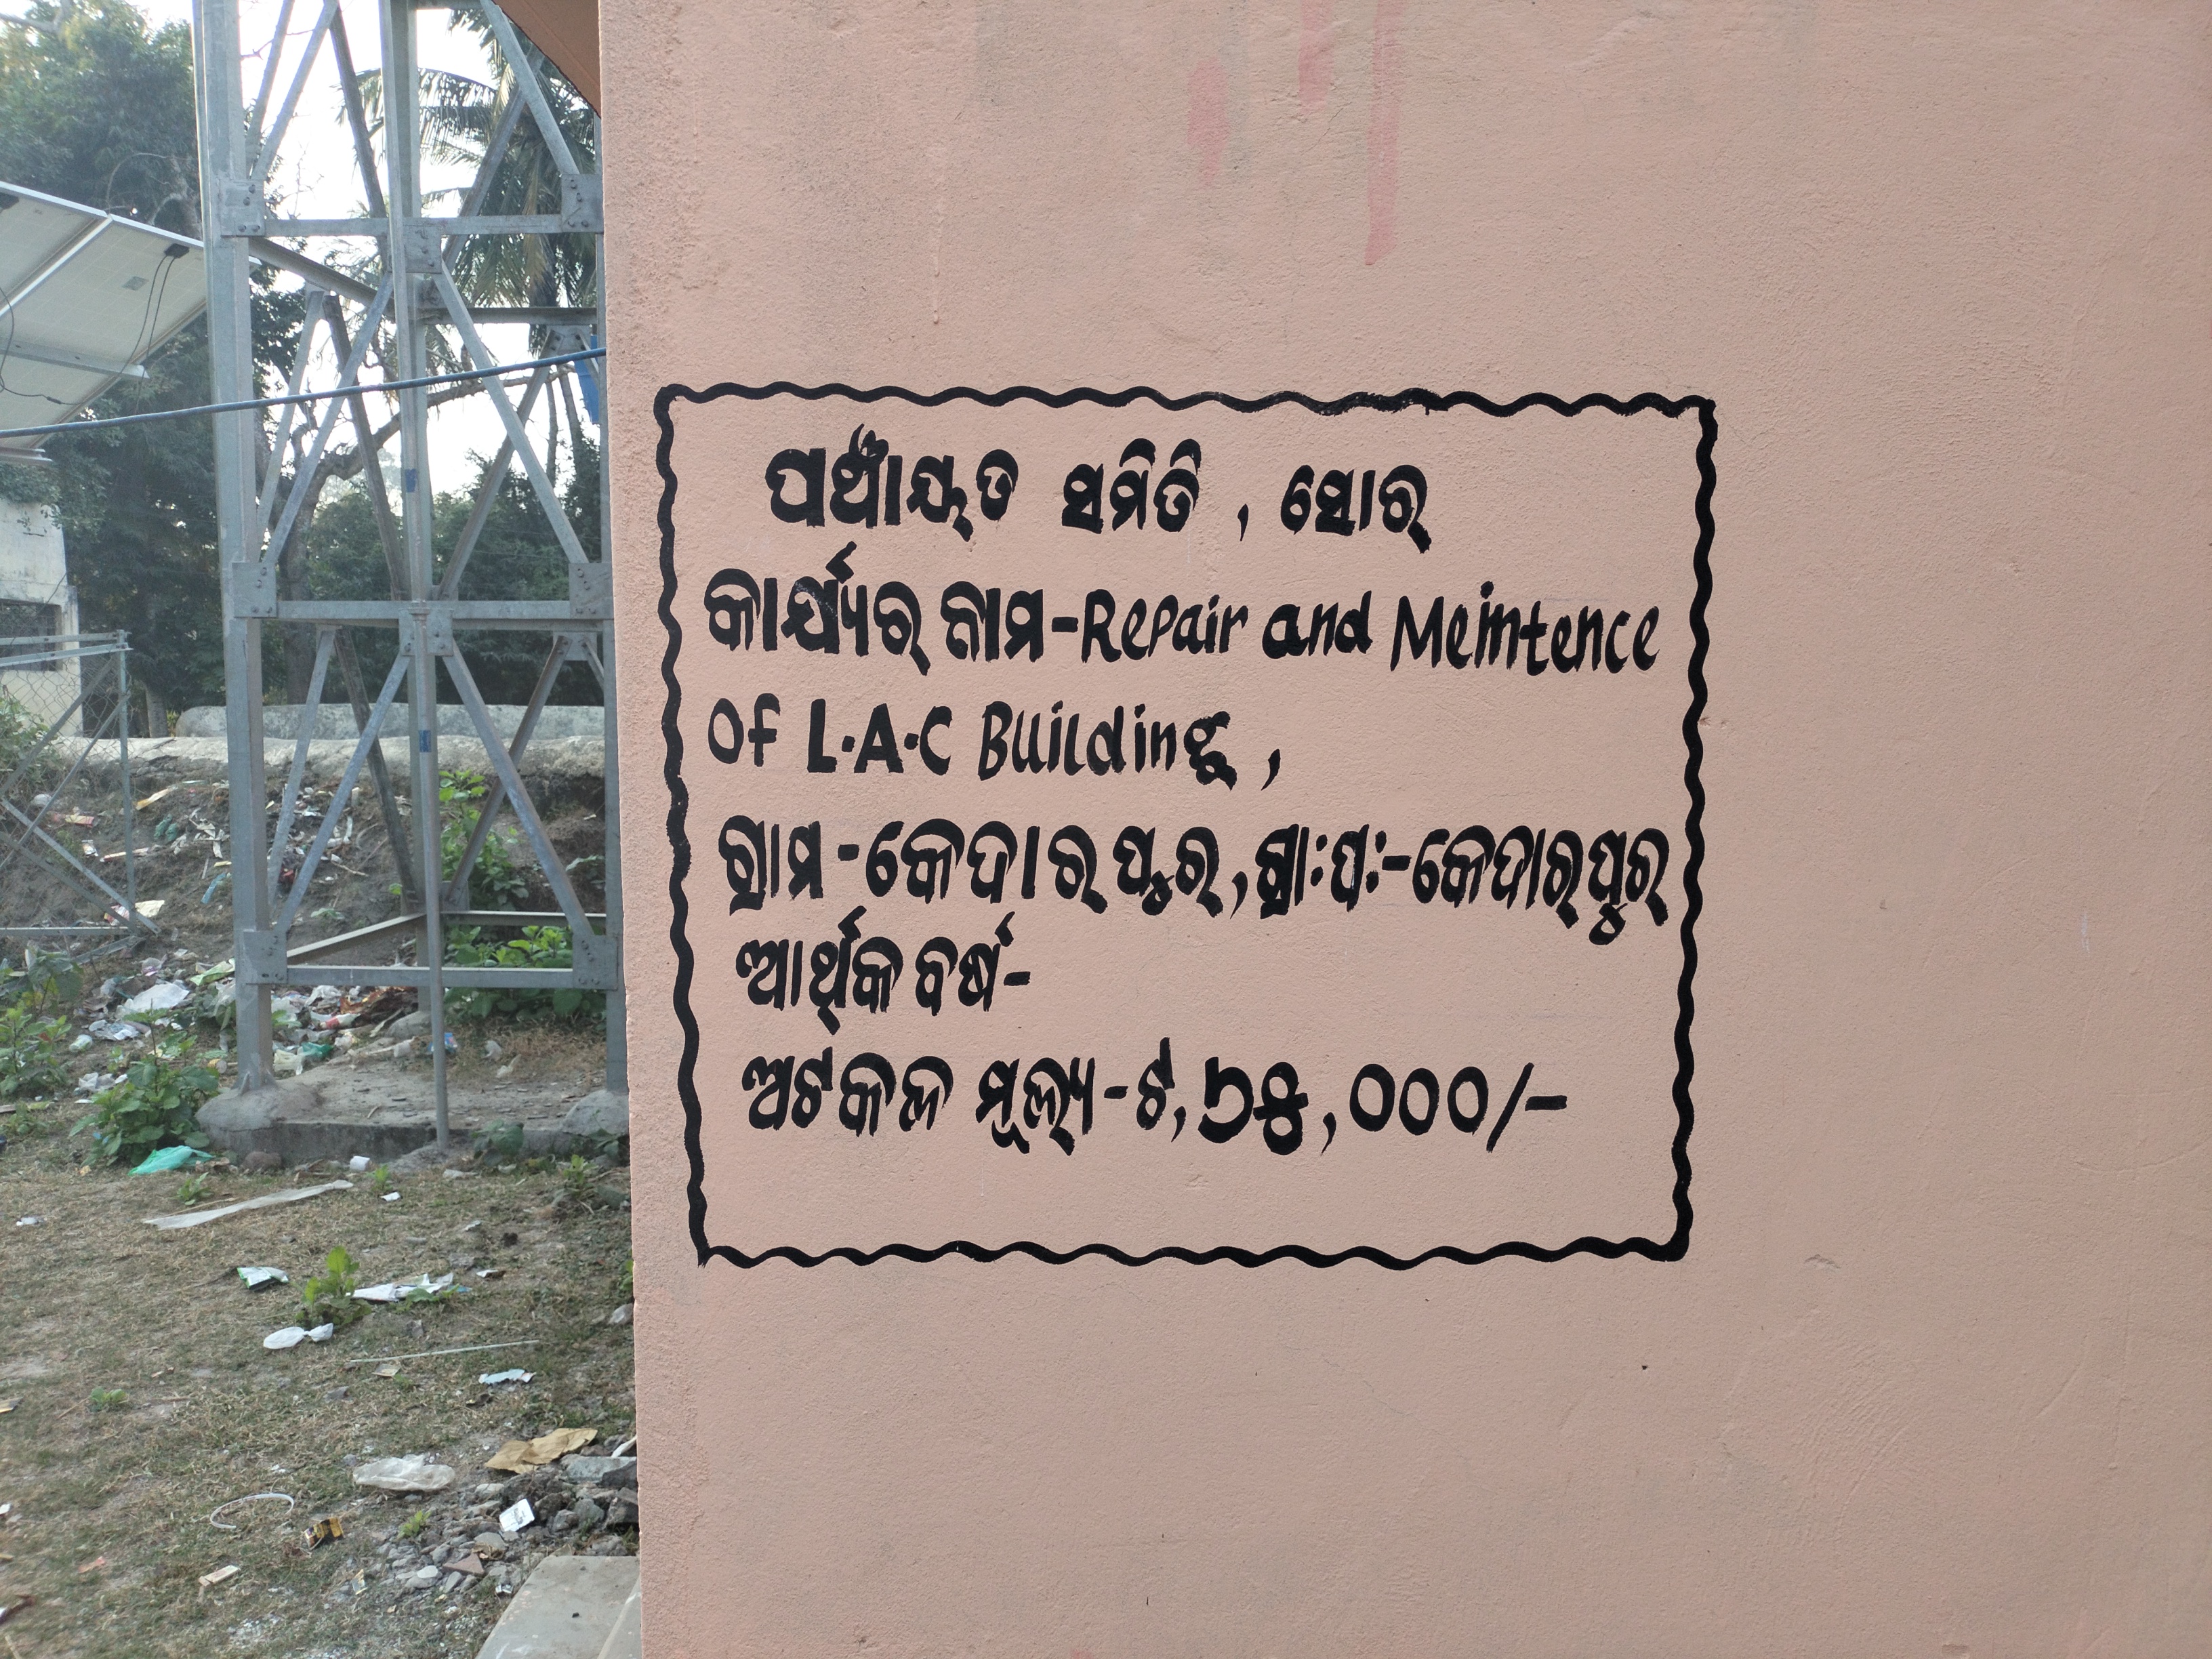 ପଞ୍ଚାୟତ ସମିତି , ସୋର
କାର୍ଯ୍ୟର ନାମ-Repair and Meintence
Of L.A.C Building ,
ଗ୍ରାମ-କେଦାରପୁର,ଗ୍ରାଃପଃ-କେଦାରପୁର
ଆର୍ଥିକ ବର୍ଷ-
ଅଟକଳ ମୂଲ୍ୟ-ଟ,